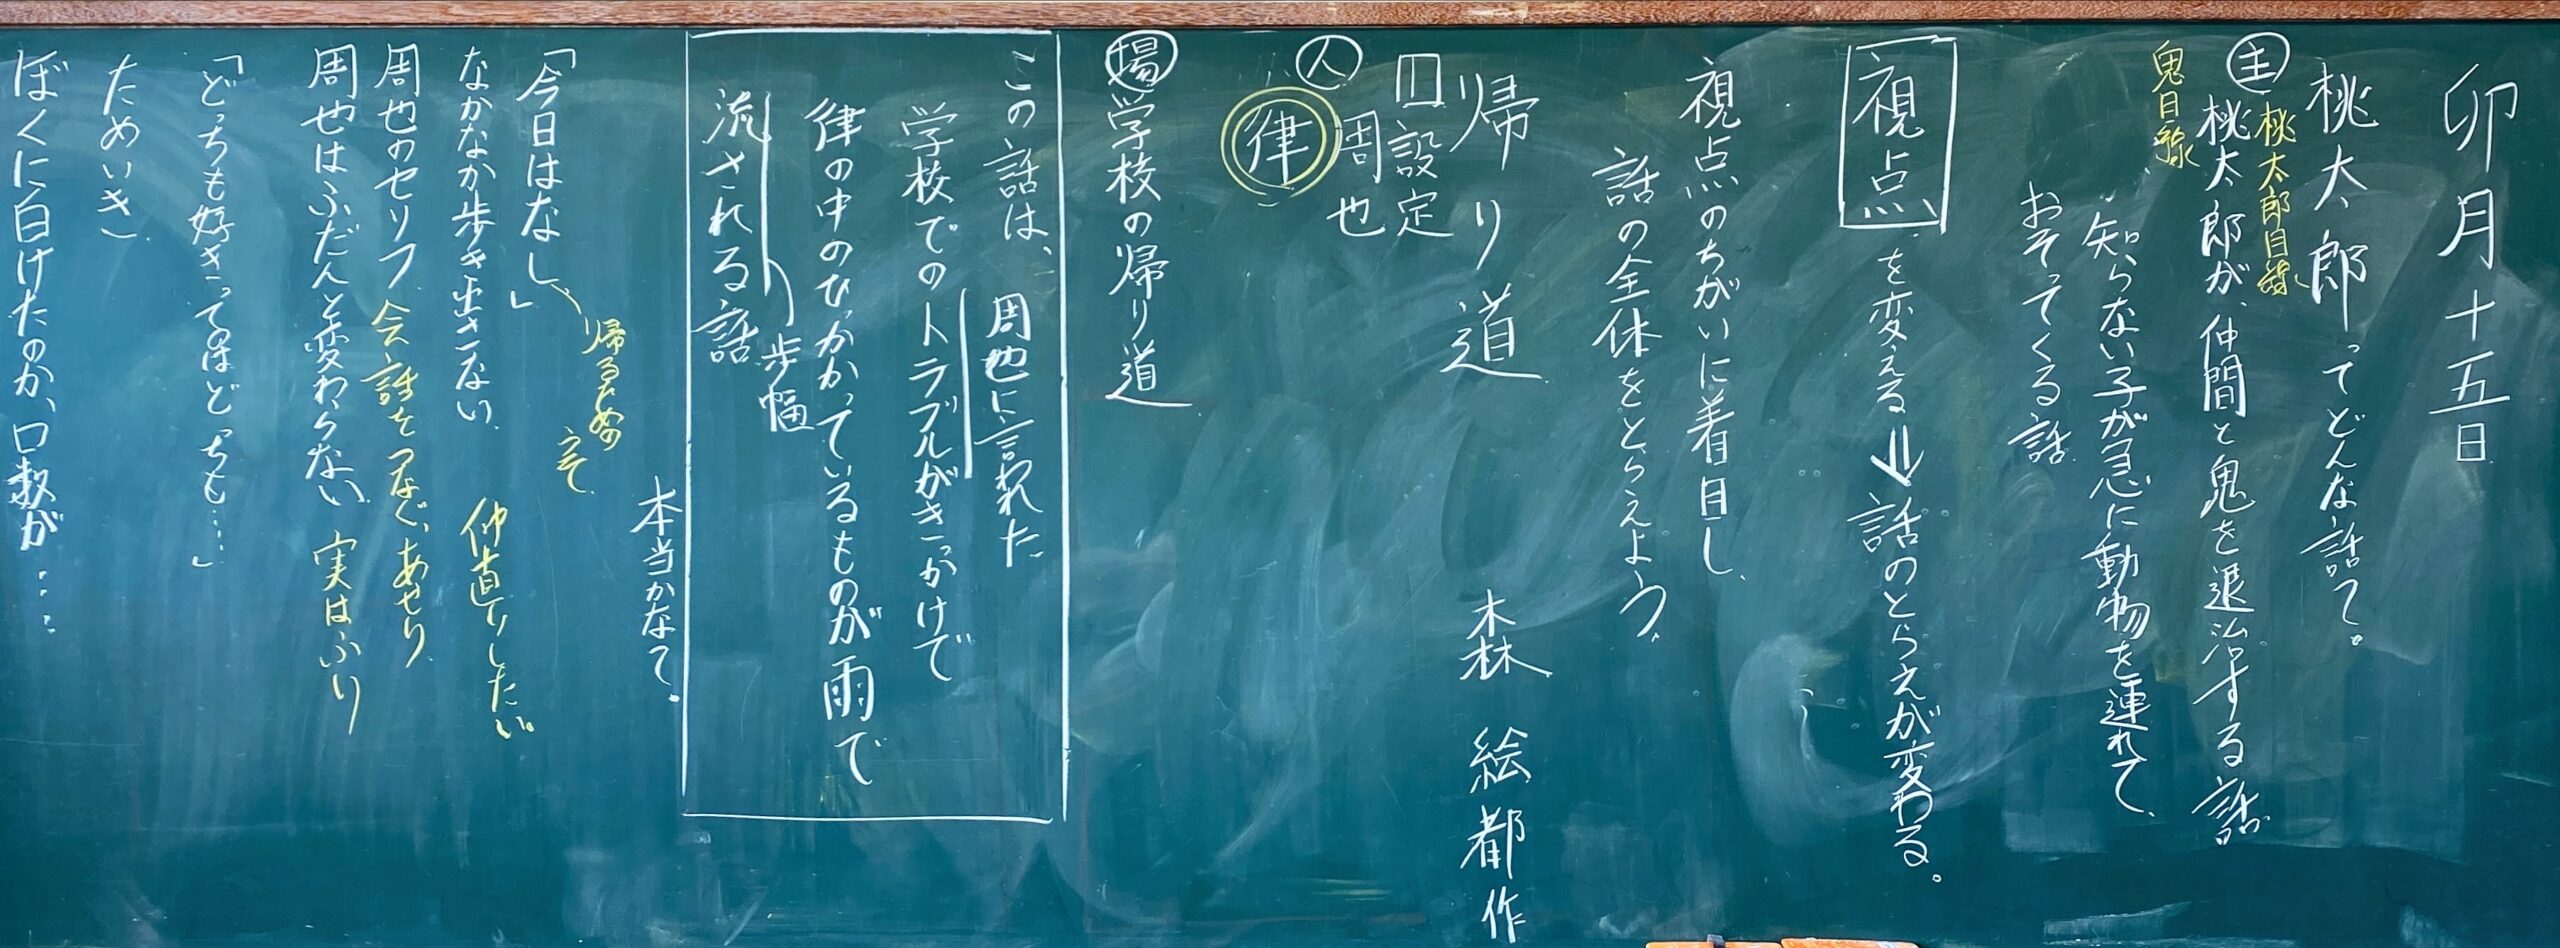 卯月十五日
桃太郎ってどんな話て。
桃太郎目線
主 桃太郎が、仲間と鬼を退治する話
鬼目線
知らない子が急に動物を連れて、
おそってくる話
視点を変える⇒話のとらえが変わる。
視点のちがいに着目し、
話の全体をとらえよう。
帰り道 森 絵都 作
口設定
人 周也
律
場 学校の帰り道
この話は、周也に言われた
学校でのトラブルがきっかけで
律の中のひっかかっているものが雨で
歩幅
流される話
本当かなて。
帰るための
「今日はなし」
なかなか歩き出さない 仲直りしたい
周也のセリフ 会話をつなぐ、あせり
周也はふだんと変わらない 実はふり
「どっちも好きってのはどっちも……」
ためいき
ぼくに白けたのか、口数が……